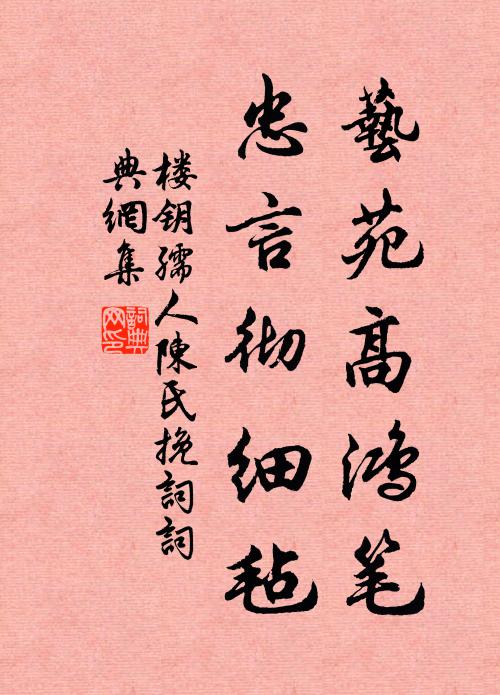 藝苑高鸿笔
忠言彻细毡
楼钥孺人陳氏挽詞詞
典網集
詞典网印